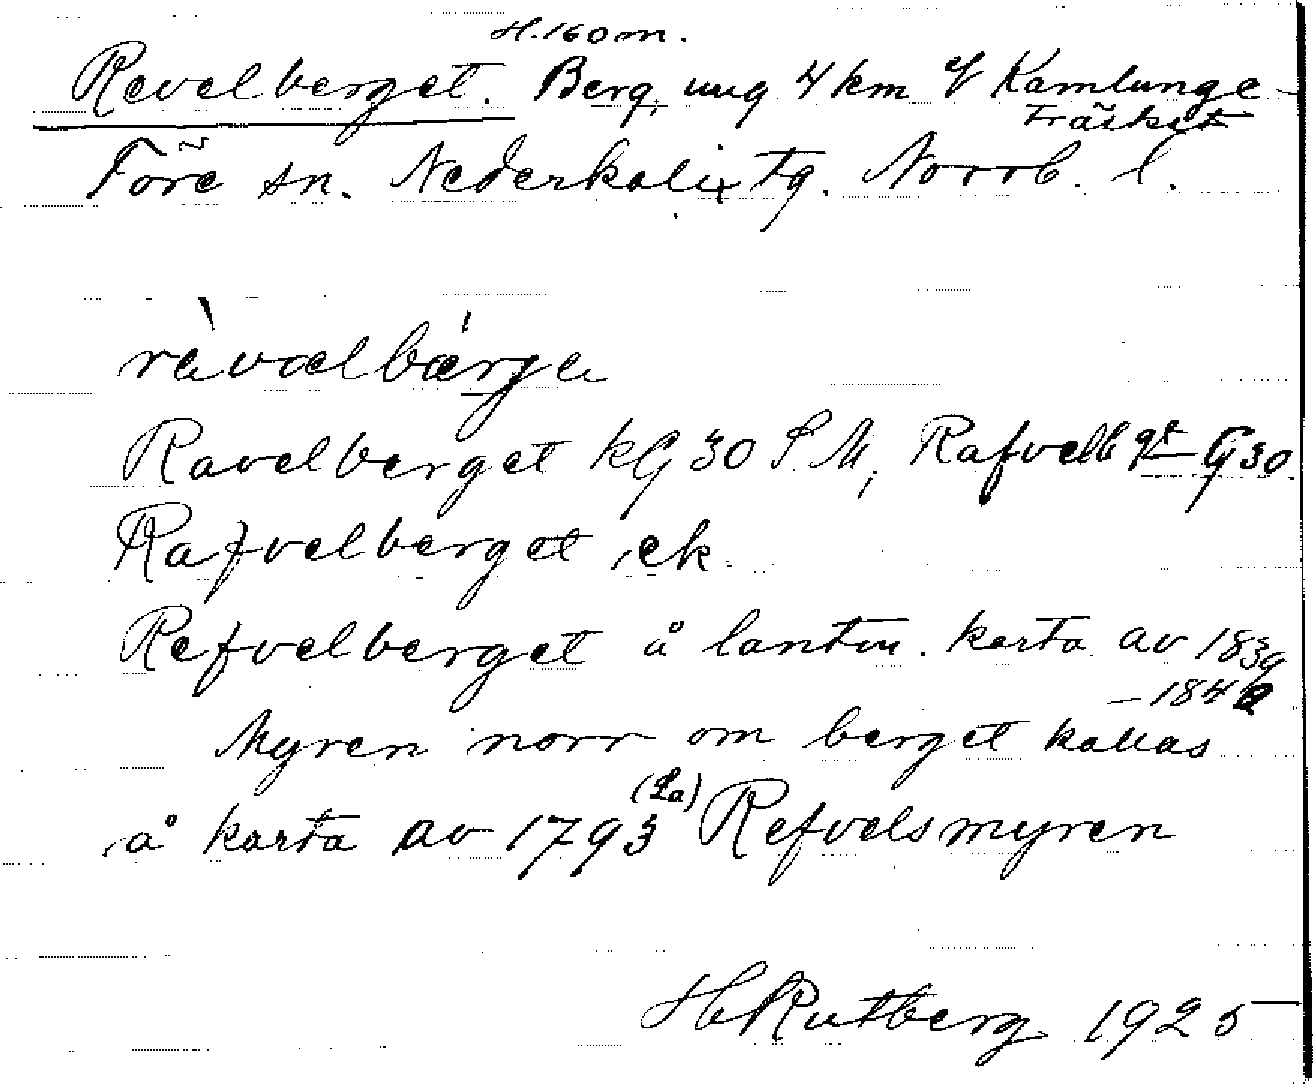 H. 160 m.
Revelberget. Berg, ung 4 km V Kamlunge-
träsket
Töre sn. Nederkalix tg. Norrb. l.
rèvælbærga
Ravelberget kG 30 S.M, Rafvelbgt G 30
Rafvelberget, ek.
Refvelberget å lantm. karta av 1839
– 1842
Myren norr om berget kallas
å karta av 1793 (La) Refvelsmyren
H Rutberg 1925